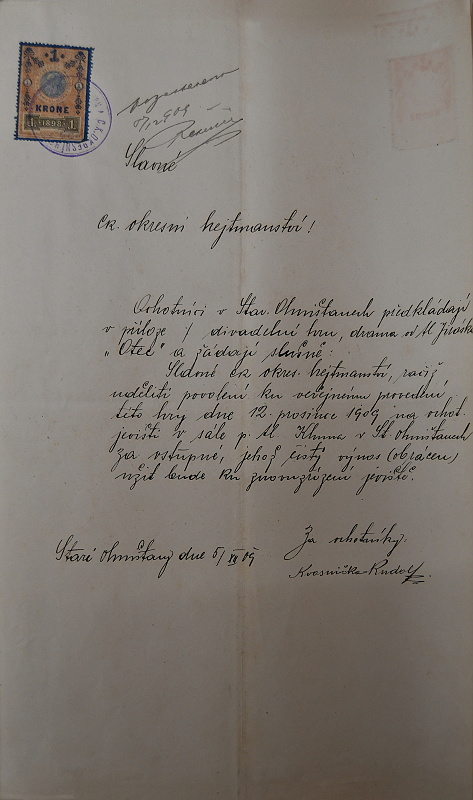 1
KRONE
1 1898 1
5/12 909
Slavné
ck. okresní hejtmanství!
Ochotníci v Star. Ohništanech předkládají
v příloze / divadelní hru, drama od Al. Jiráska
„Otec" a žádají slušně:
Slavné ck okres. hejtmanství, račiž
uděliti povolení ku veřejnému provedení
této hry dne 12. prosince 1909 na ochot.
jevišti v sále p. Al. v St. Ohništanech
za vstupné, jehož čistý výnos (obrácen)
užit bude ku znovuzřízení jeviště.
Staré Ohništany dne 5/XII 09
Za ochotníky:
Kvasnička Rudolf